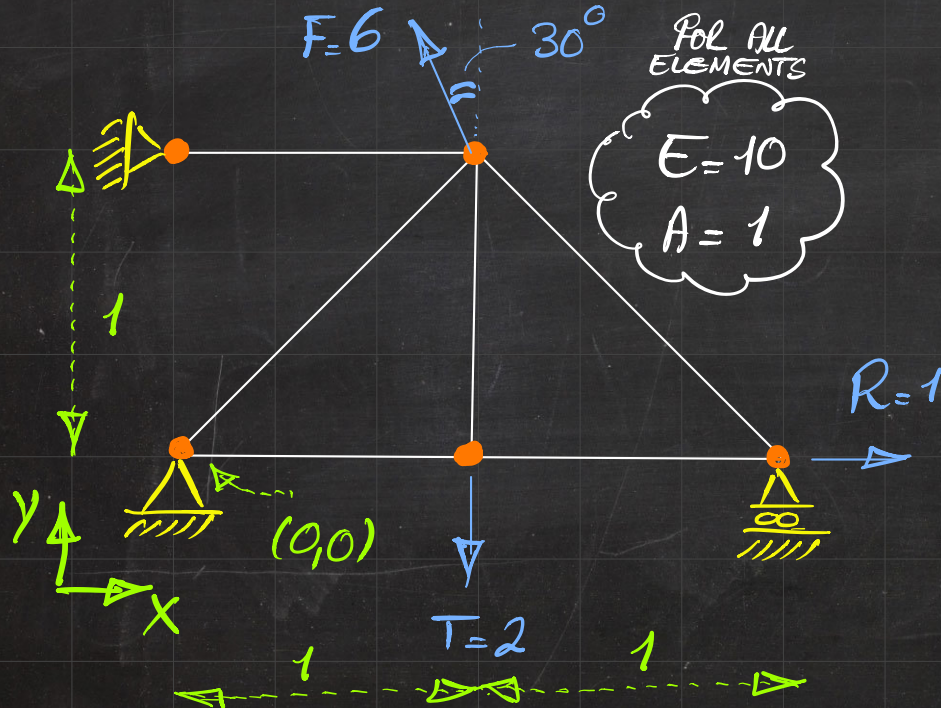 F=6
30°
FOR ALL
ELEMENTS
E=10
A=1
1
R=1
(0,0)
y
x
T=2
1
1